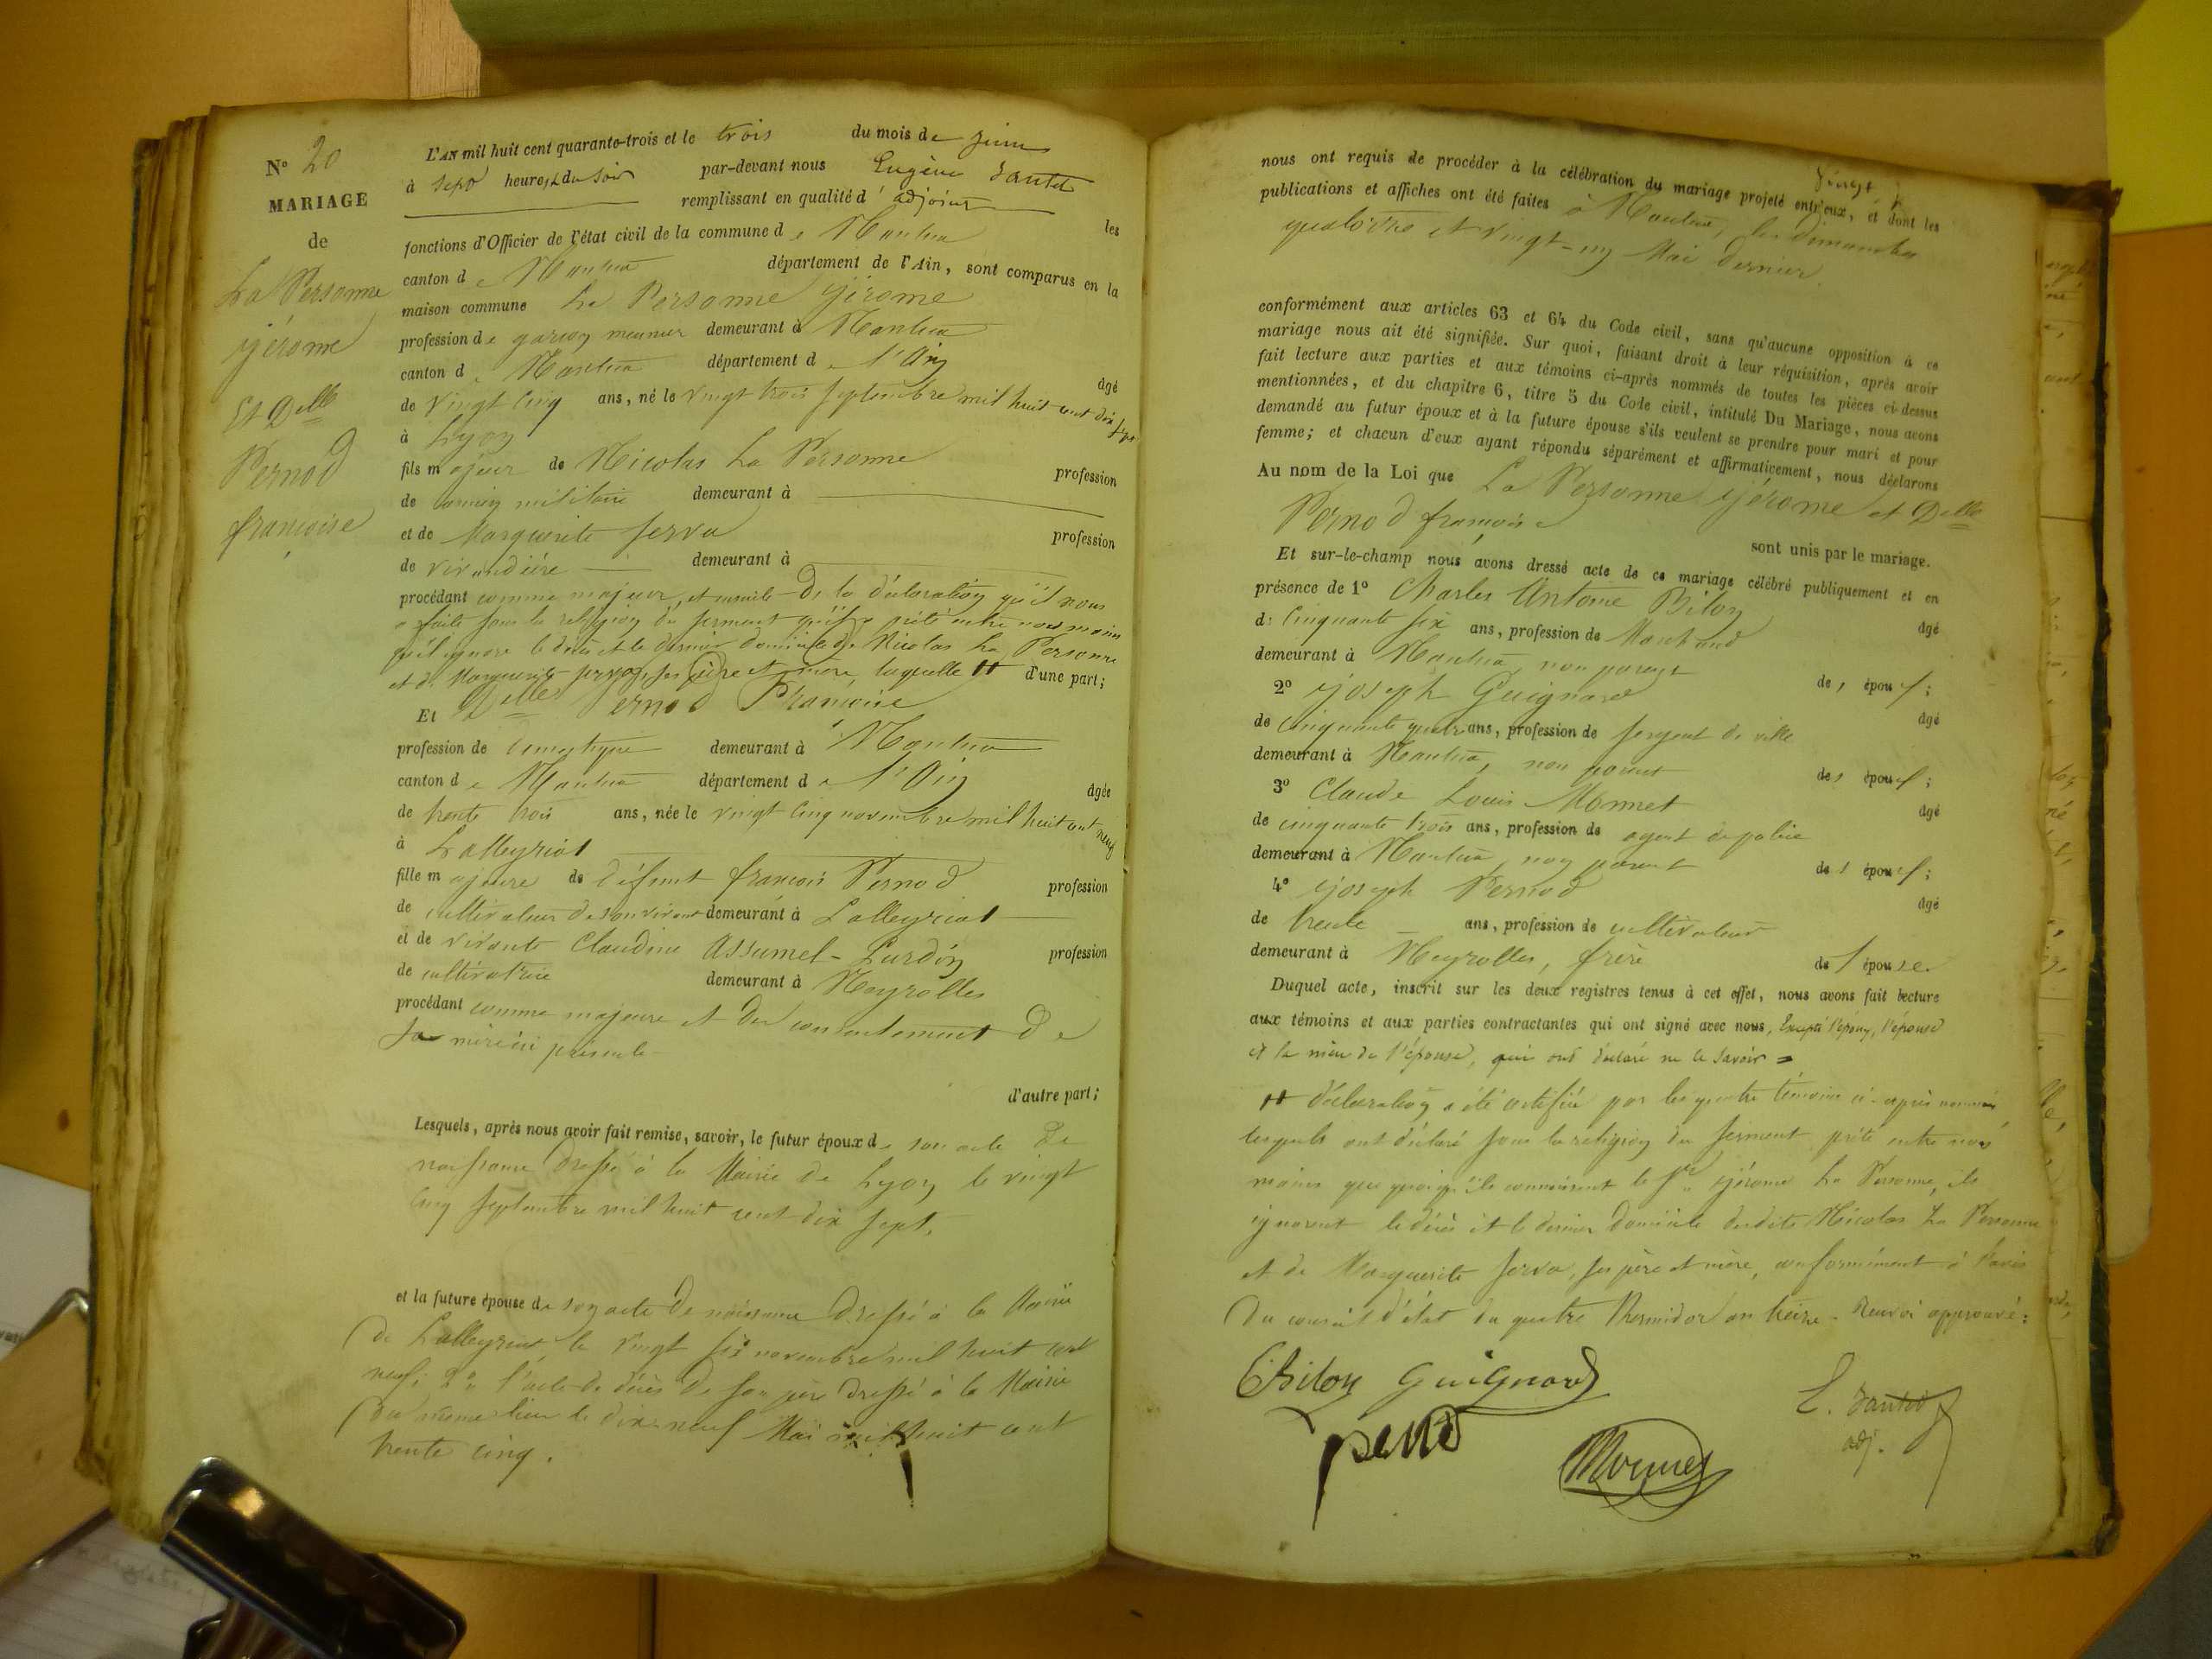 N° 20
MARIAGE
de
La Personne
jérome
Et Delle
Pernod
françoise
L'AN mil huit cent quarante-trois et le trois du mois de juin
à sept heures du soir par-devant nous Eugène
remplissant en qualité d'adjoint les
fonctions d'Officier de l'état civil de la commune de Nantua
canton de Nantua département de l'Ain, sont comparus en la
maison commune La Personne jérome
profession de garçon meunier demeurant à Nantua
canton de Nantua département de l'Ain âgé
de vingt cinq ans, né le vingt trois septembre mil huit cent dix sept
à Lyon
fils majeur de Nicolas La Personne profession
de ancien militaire demeurant à
et de Marguerite Serva profession
de vivandière demeurant à
procédant comme majeur, et ensuite de la déclaration qu'il nous
a faite sous la religion du serment qu'il a prêté entre nos mains
qu'il ignore le décès et le dernier domicile de Nicolas La Personne
et de Marguerite Serva, ses père et mère, laquelle # d'une part;
Et Delle Pernod Françoise
profession de demeurant à Nantua
canton de Nantua département de l'Ain âgée
de trente trois ans, née le vingt cinq novembre mil huit cent neuf
à Lalleyriat
fille majeure de défunt françois Pernod profession
de cultivateur de son vivant demeurant à Lalleyriat
et de vivante Claudine Assumel-Lurdin profession
de cultivatrice demeurant à Neyrolles
procédant comme majeure et du consentement de
sa mère ici présente
d'autre part;
Lesquels, après nous avoir fait remise, savoir, le futur époux de son acte de
naissance dressé à la Mairie de Lyon le vingt
cinq septembre mil huit cent dix sept.
et la future épouse de son acte de naissance dressé à la Mairie
de Lalleyriat le vingt six novembre mil huit cent
neuf; 2° l'acte de décès de son père dressé à la Mairie
du même lieu le dix-neuf Mai mil huit cent
trente cinq.
nous ont requis de procéder à la célébration du mariage projeté entr'eux, et dont les
publications et affiches ont été faites à Nantua, les dimanches
quatorze et vingt-un Mai dernier
conformément aux articles 63 et 64 du Code civil, sans qu'aucune opposition à ce
mariage nous ait été signifiée. Sur quoi, faisant droit à leur réquisition, après avoir
fait lecture aux parties et aux témoins ci-après nommés de toutes les pièces ci-dessus
mentionnées, et du chapitre 6, titre 5 du Code civil, intitulé Du Mariage, nous avons
demandé au futur époux et à la future épouse s'ils veulent se prendre pour mari et pour
femme; et chacun d'eux ayant répondu séparément et affirmativement, nous déclarons
Au nom de la Loi que La Personne jérome et Delle
Pernod françoise
sont unis par le mariage.
Et sur-le-champ nous avons dressé acte de ce mariage célébré publiquement et en
présence de 1° Charles Antoine Bilon âgé
de cinquante six ans, profession de Marchand
demeurant à Nantua, non parent de l'époux;
2° joseph Guignard âgé
de cinquante quatre ans, profession de sergent de ville
demeurant à Nantua, non parent de l'époux;
3° Claude Louis Monnet âgé
de cinquante trois ans, profession de agent de police
demeurant à Nantua, non parent de l'époux;
4° joseph Pernod âgé
de trente ans, profession de cultivateur
demeurant à Neyrolles, frère de l'épouse.
Duquel acte, inscrit sur les deux registres tenus à cet effet, nous avons fait lecture
aux témoins et aux parties contractantes qui ont signé avec nous, Excepté l'époux, l'épouse
et la mère de l'épouse, qui ont déclaré ne le savoir =
# déclaration a été certifiée par les quatre témoins ci-après nommés,
lesquels ont déclaré sous la religion du serment prêté entre nos
mains que quoiqu'ils connaissent le Sr jérome La Personne, ils
ignorent le décès et le dernier domicile desdits Nicolas La Personne
et de Marguerite Serva, ses père et mère, conformément à l'avis
du conseil d'état du quatre Thermidor an treize - Renvoi approuvé:
CBilon Guignard
Monnet
adj.